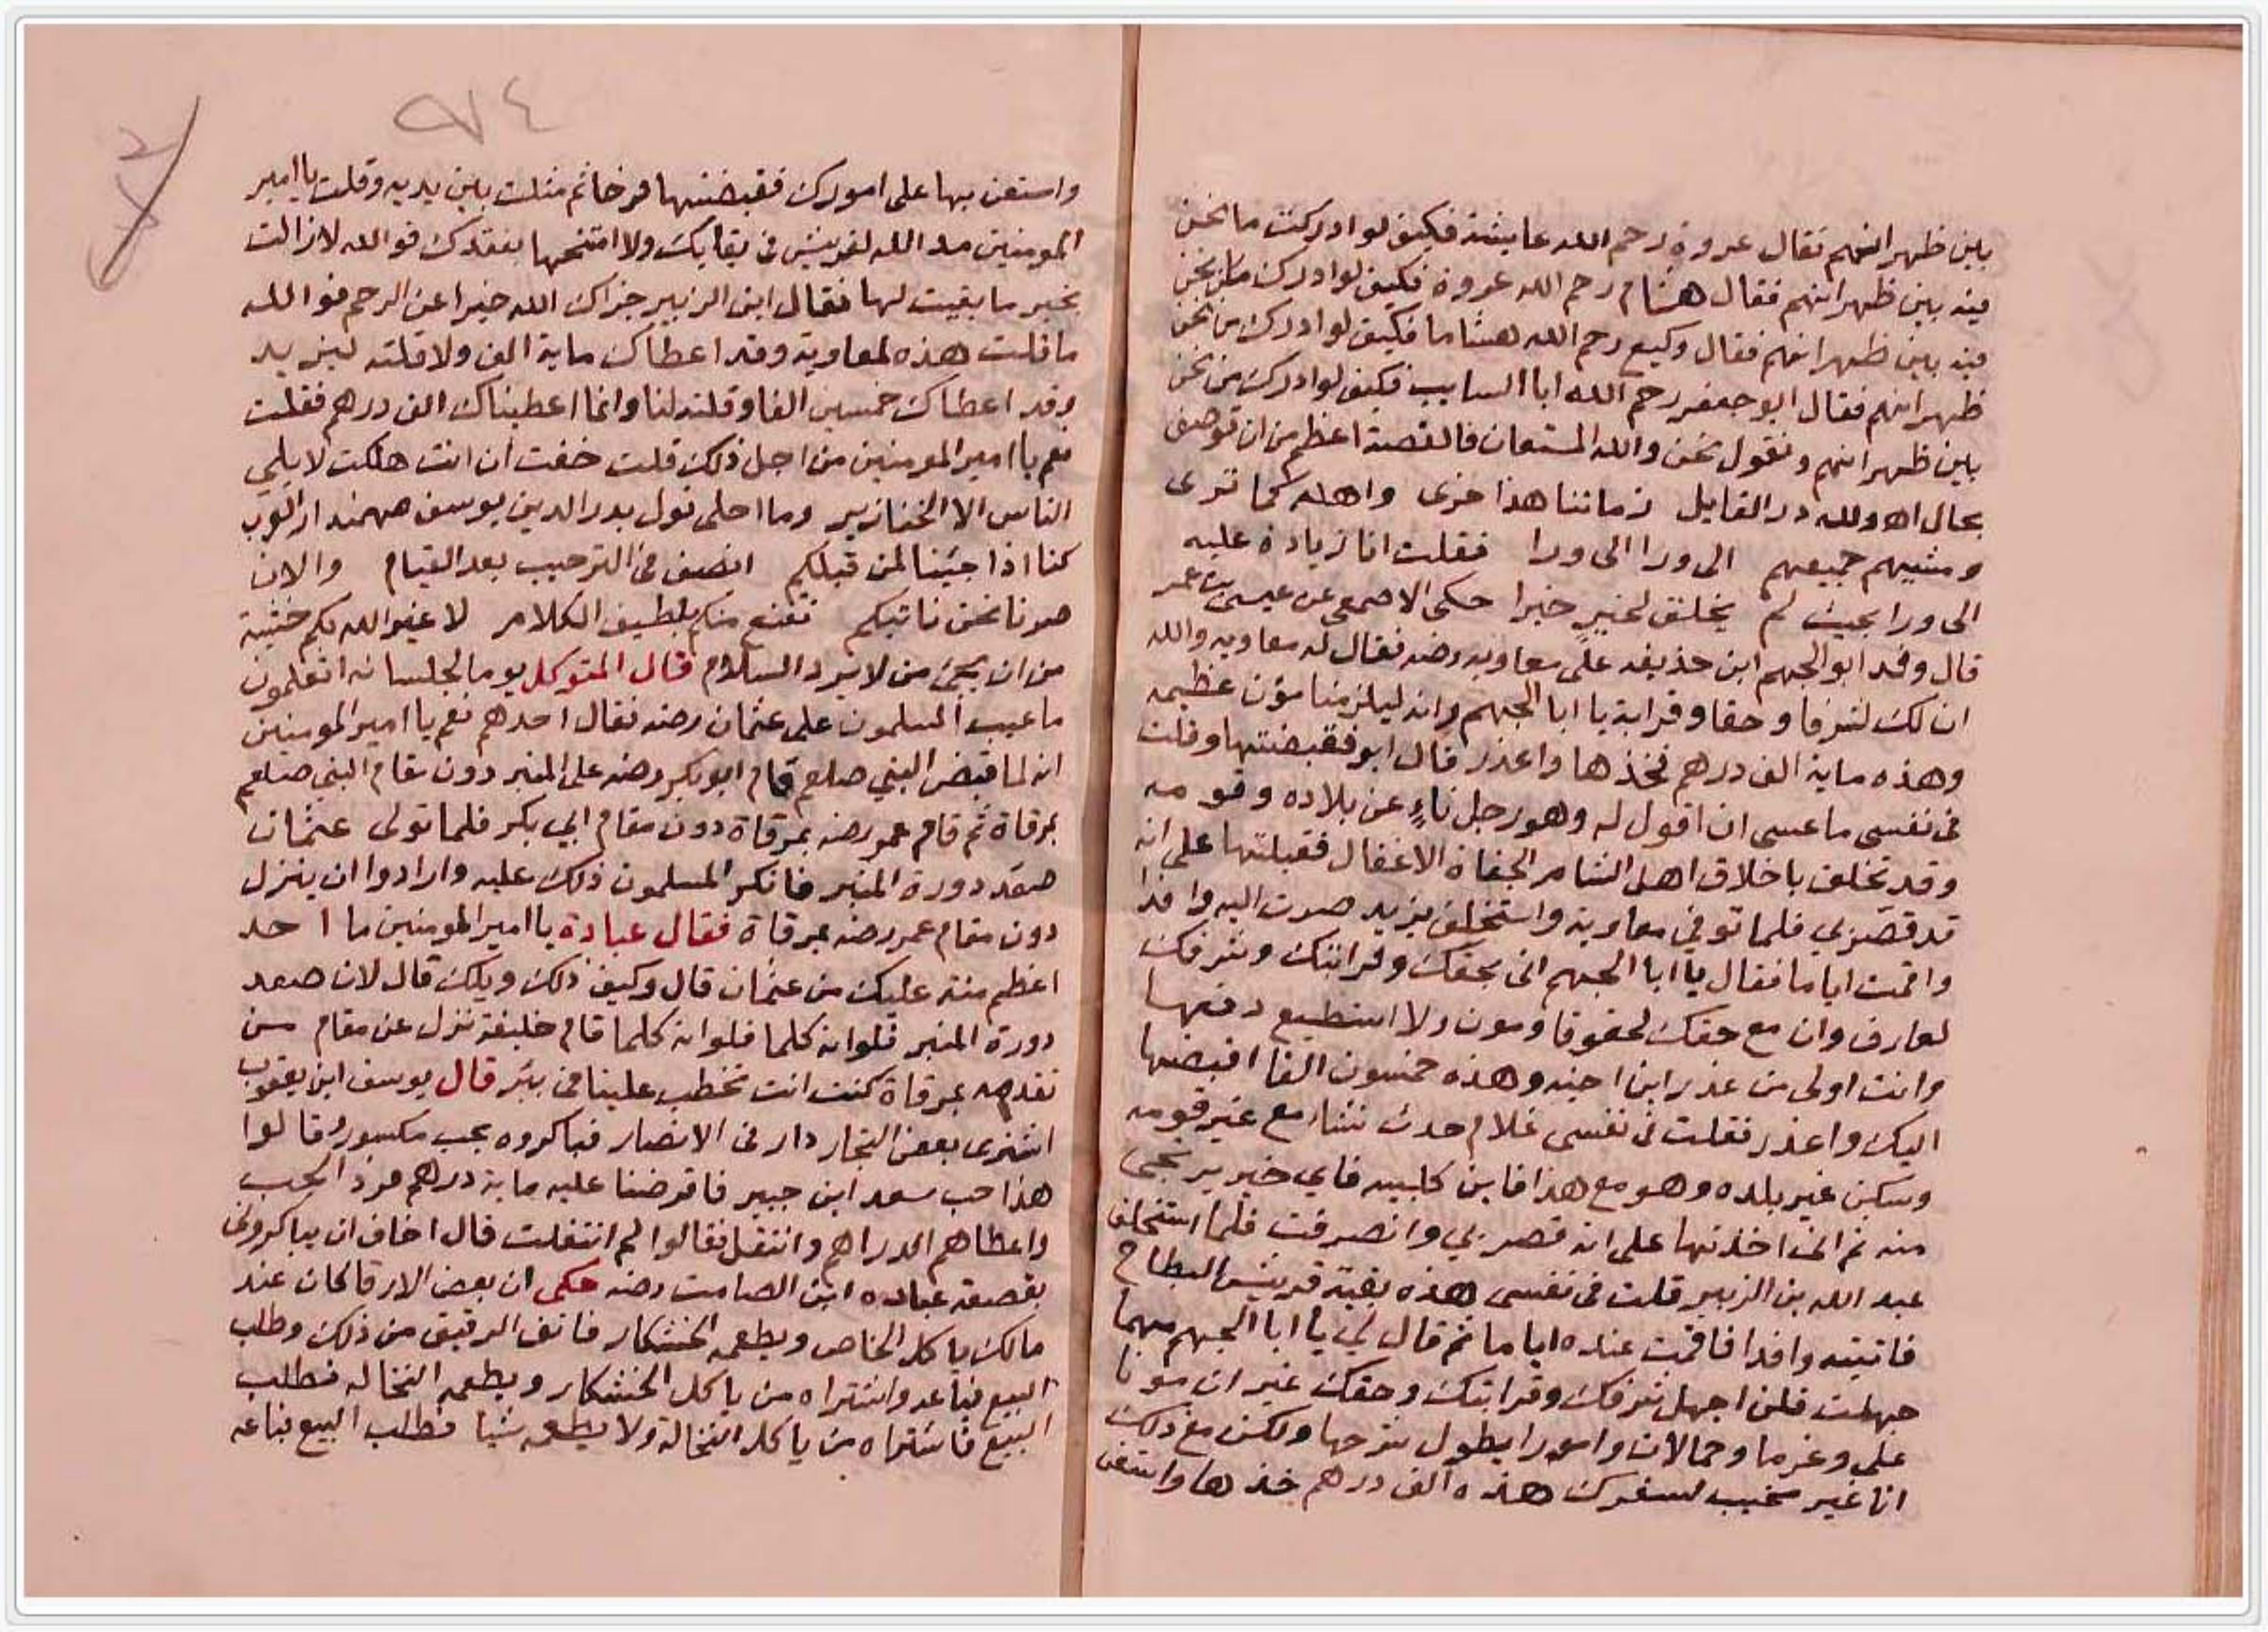 بين ظهرانيهم فقال عروة رحم الله عايشة فكيف لو ادركت ما نحن
فيه بين ظهرانيهم فقال هشام رحم الله عروة فكيف لو ادرك ما نحن
فيه بين ظهرانيهم فقال وكيع رحم الله هشاما فكيف لو ادرك من نحن
ظهرانيهم فقال ابو جعفر رحم الله ابا السايب فكيف لو ادرك من نحن
بين ظهرانيهم ونقول نحن والله المستعان فالقصة اعظم من ان توصف
بحال اه ولله در القايل زماننا هذا خرى واهله كما ترى
ومشيهم جميعهم الى ورا الى ورا فقلت انا زيادة عليه
الى ورا بحيث لم يخلق لخير خيرا حكى الاصمعي عن عيسى بن عمر
قال وفد ابو الجهم ابن حذيفه على معاويه رضه فقال له معاويه والله
ان لك لشرفا وحقا وقرابة يا ابا الجهم وانه ليلزمنا مؤن عظيمه
وهذه ماية الف درهم فخذها واعذر قال ابو فقبضتها وقلت
في نفسى ما عسى ان اقول له وهو رجل ناءٍ عن بلاده وقومه
وقد تخلق باخلاق اهل الشام الجفاة الاغفال فقبلتها على انه
قد قصر بي فلما توفي معاوية واستخلف يزيد صرت اليه وافدا
واقمت اياما فقال يا ابا الجهم انى بحقك ولقرابتك وشرفك
لعارف وان مع حقك لحقوقا ومون ولا استطيع دفعها
وانت اولى من عذر ابن اخيه وهذه خمسون الفا اقبضها
اليك واعذر فقلت في نفسى غلام حدث نشاء مع غير قومه
وسكن غير بلده وهو مع هذا فابن كلبيه فاي خير يرتجى
منه ثم انى اخذتها على انه قصر بي وانصرفت فلما استخلف
عبد الله بن الزبير قلت في نفسى هذه بقية قريش البطاح
فاتيته وافدا فاقمت عنده اياما ثم قال لي يا ابا الجهم مهما
جهلت فلن اجهل شرفك وقرابتك وحقك غير ان مونا
على وغرما وحمالات وامورا يطول شرحها ولكن مع ذلك
انا غير مخيب لسفرك هذه الف درهم خذها واستعن
٩٤
واستعن بها على امورك فقبضتها فرحا ثم مثلت بين يديه وقلت يا امير
المومنين مد الله لقريش في بقايك ولا امتحنها بفقدك فوالله لا زالت
بخير ما بقيت لها فقال ابن الزبير جزاك الله خيرا عن الرحم فوالله
ما قلت هذه لمعاوية وقد اعطاك ماية الف ولا قلته ليزيد
وقد اعطاك خمسين الفا وقلته لنا وانما اعطيناك الف درهم فقلت
نعم يا امير المومنين من اجل ذلك قلت خفت ان انت هلكت لا يلي
الناس الا الخنازير وما احلى قول بدر الدين يوسف مهمندار العرب
كنا اذا جينا لمن قبلكم انصف في الترحيب بعد القيام والان
صرنا نحن ناتيكم نقنع منكم بلطيف الكلام لا غير الله بكم خشية
من ان يجى من لا يرد السلام قال المتوكل يوما لجلسائه اتعلمون
ما عيب المسلمون على عثمان رضه فقال احدهم نعم يا امير المومنين
انه لما قبض النبي صلعم قام ابو بكر رضه على المنبر دون مقام النبي صلعم
بمرقاة ثم قام عمر رضه بمرقاة دون مقام ابي بكر فلما تولى عثمان
صعد دورة المنبر فانكر المسلمون ذلك عليه وارادوا ان ينزل
دون مقام عمر رضه بمرقاة فقال عبادة يا امير المومنين ما احد
اعظم منة عليك من عثمان قال وكيف ذلك ويلك قال لان صعد
دورة المنبر فلوانه كلما فلوانه كلما قام خليفة نزل عن مقام من
تقدمه بمرقاة كنت انت تخطب علينا في بئر قال يوسف ابن يعقوب
اشترى بعض التجار دار في الانصار فباكروه بحب مكسور وقالوا
هذا حب سعد ابن جبير فاقرضنا عليه ماية درهم فرد الحب
واعطاهم الدراهم وانتقل فقالوا لم انتقلت قال اخاف ان يباكروني
بقصعة عباده ابن الصامت رضه حكى ان بعض الارقا كان عند
مالك ياكل الخاص ويطعمه الخشكار فانف الرقيق من ذلك وطلب
البيع فباعه واشتراه من ياكل الخشكار ويطعمه النخاله فطلب
البيع فاشتراه من ياكل النخالة ولا يطعمه شيا فطلب البيع فباعه